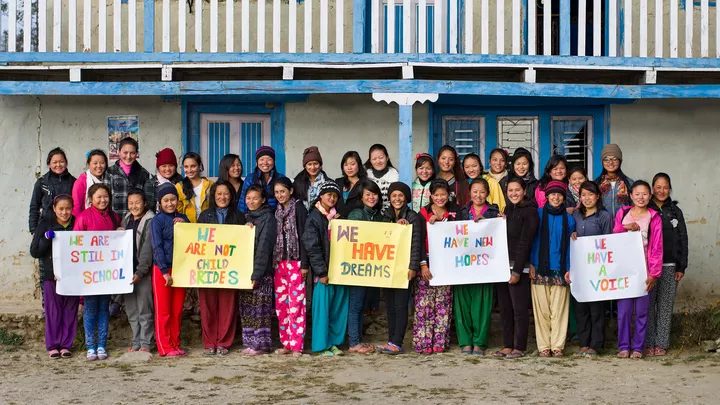 WE ARE
STILL IN
SCHOOL
WE
ARE NOT
CHILD
BRIDES
WE HAVE
DREAMS
WE
HAVE NEW
HOPES
WE
HAVE
A
VOICE